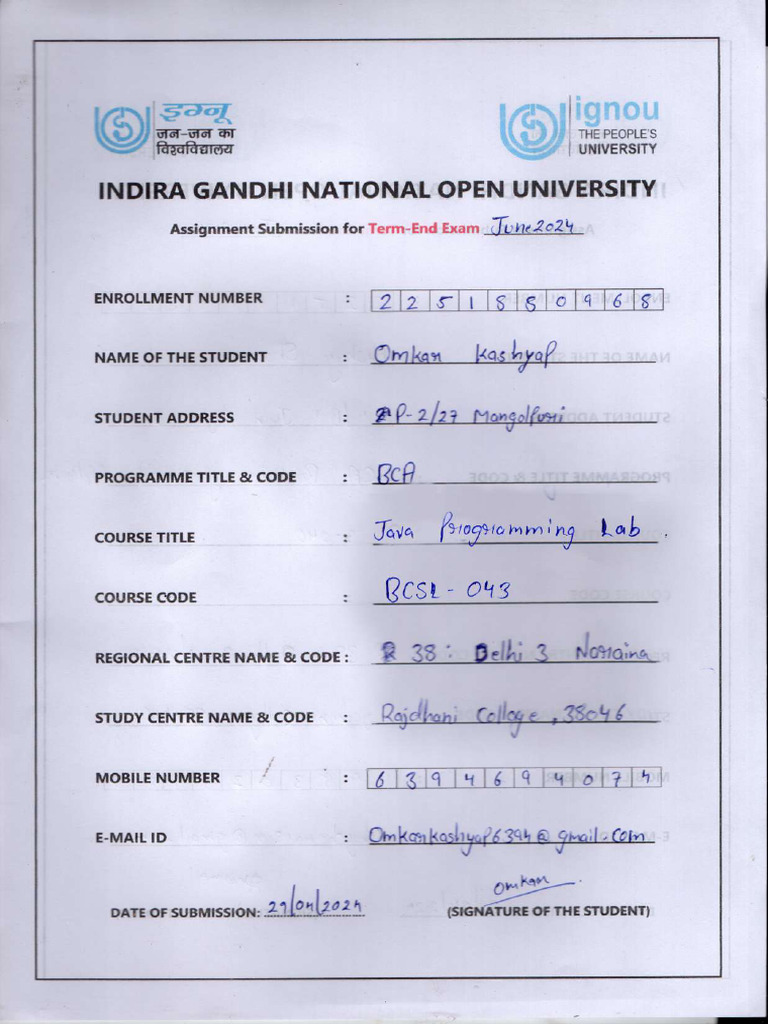 इग्नू
जन-जन का
विश्वविद्यालय
ignou
THE PEOPLE'S
UNIVERSITY
INDIRA GANDHI NATIONAL OPEN UNIVERSITY
Assignment Submission for Term-End Exam June 2024
ENROLLMENT NUMBER : 2251880968
NAME OF THE STUDENT : Omkar Kashyap
STUDENT ADDRESS : P-2/27 Mangolpuri
PROGRAMME TITLE & CODE : BCA
COURSE TITLE : Java Programming Lab
COURSE CODE : BCSL-043
REGIONAL CENTRE NAME & CODE : 38: Delhi 3 Naraina
STUDY CENTRE NAME & CODE : Rajdhani College, 38046
MOBILE NUMBER : 6394694074
E-MAIL ID : Omkarkashyap6394@gmail.com
Omkar
DATE OF SUBMISSION: 29/04/2024 (SIGNATURE OF THE STUDENT)